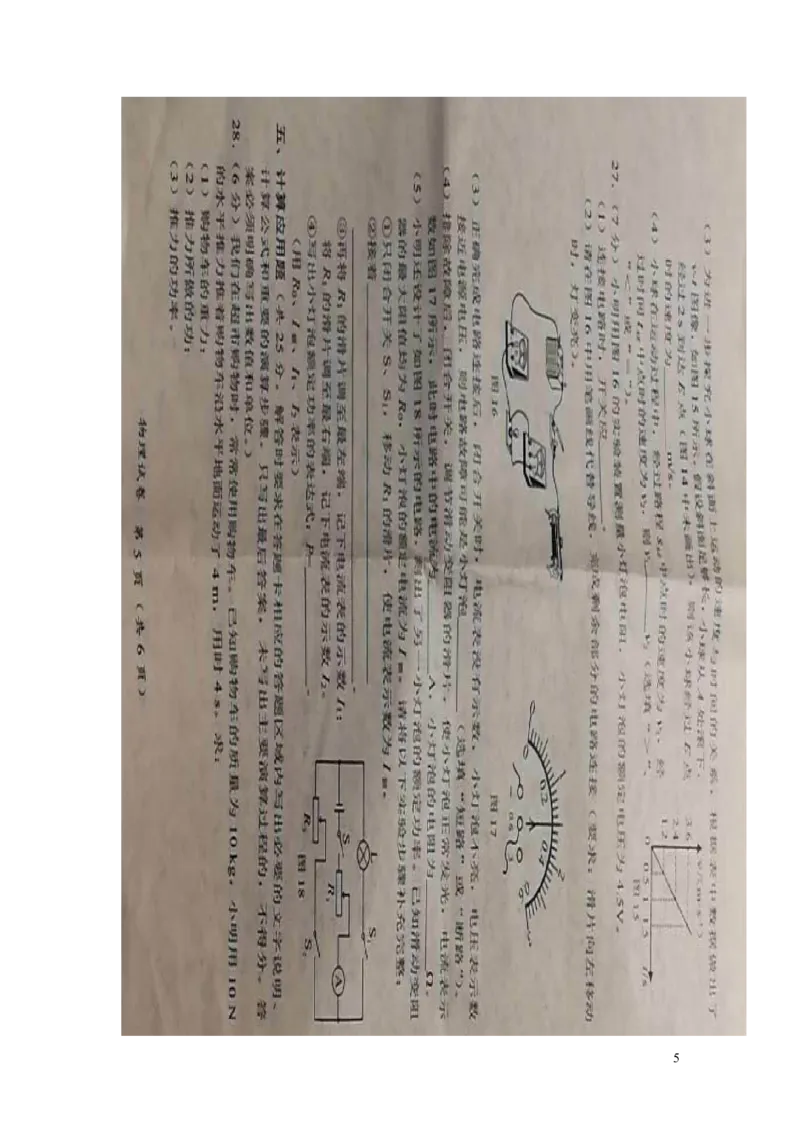 (3) 为进一步探究小球在斜面上运动的速度与时间的关系，根据表中数据做出了
v-t图像，如图15所示。假设斜面足够长，小球从A处滚下，
经过2s到达E点（图14中未画出），则该小球经过E点
时的速度为 m/s。
(4) 小球在运动过程中，经过路程 中点时的速度为 ，经
过时间 中点时的速度为 ，则 （选填“>”、
“<”或“=”）。
v/(m·s⁻¹)
3.6
2.4
1.2
0 0.5 1 1.5 t/s
图15
27.（7分）小明用图16的实验装置测量小灯泡电阻，小灯泡的额定电压为4.5V。
(1) 连接电路时，开关应 。
(2) 请在图16中用笔画线代替导线，完成剩余部分的电路连接（要求：滑片向左移动
时，灯变亮）。
图16
0 0.2 0.4
0.6 3
图17
(3) 正确完成电路连接后，闭合开关时，电流表没有示数，小灯泡不亮，电压表示数
接近电源电压，则电路故障可能是小灯泡 （选填“短路”或“断路”）。
(4) 排除故障后，闭合开关，调节滑动变阻器的滑片，使小灯泡正常发光，电流表示
数如图17所示，此时电路中的电流为 A，小灯泡的电阻为 Ω。
(5) 小明还设计了如图18所示的电路，测出了另一小灯泡的额定功率。已知滑动变阻
器的最大阻值均为R₀，小灯泡的额定电流为I额。请将以下实验步骤补充完整：
①只闭合开关S、S₁，移动R₁的滑片，使电流表示数为I额。
②接着 。
③再将R₁的滑片调至最左端，记下电流表的示数I₁；
将R₁的滑片调至最右端，记下电流表的示数I₂。
④写出小灯泡额定功率的表达式：P=
（用R₀、I额、I₁、I₂表示）
L S₁
S R₁ A
R₂ S₂
图18
五、计算应用题（共25分。解答时要求在答题卡相应的答题区域内写出必要的文字说明、
计算公式和重要的演算步骤。只写出最后答案，未写出主要演算过程的，不得分。答
案必须明确写出数值和单位。）
28.（6分）我们在超市购物时，常常使用购物车。已知购物车的质量为10kg，小明用10N
的水平推力推着购物车沿水平地面运动了4m，用时4s。求：
(1) 购物车的重力；
(2) 推力所做的功；
(3) 推力的功率。
物理试卷 第5页（共6页）
5